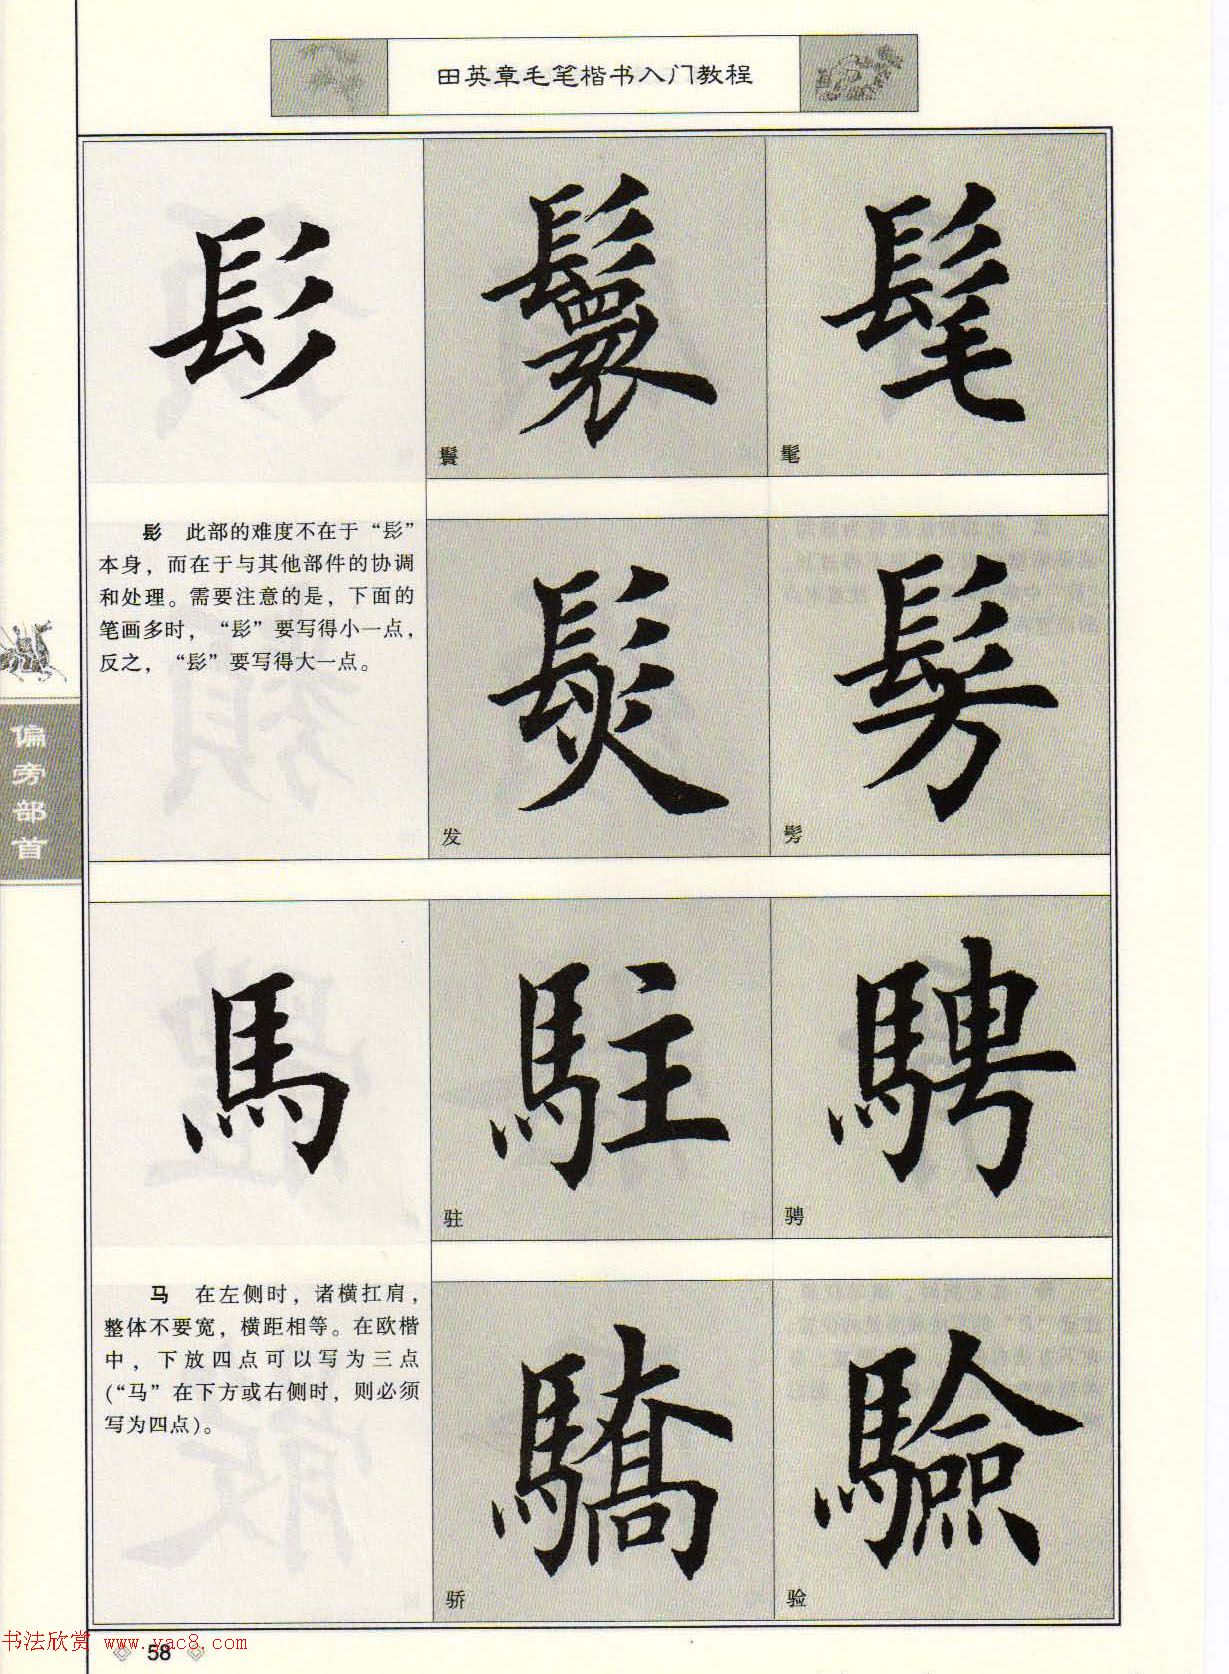 田英章毛笔楷书入门教程
髟
鬟
髦
鬟
髦
髟 此部的难度不在于“髟”
本身，而在于与其他部件的协调
和处理。需要注意的是，下面的
笔画多时，“髟”要写得小一点，
反之，“髟”要写得大一点。
髮
髣
发
髣
偏旁部首
馬
駐
騁
驻
骋
马 在左侧时，诸横扛肩，
整体不要宽，横距相等。在欧楷
中，下放四点可以写为三点
(“马”在下方或右侧时，则必须
写为四点)。
驕
驗
骄
验
58
书法欣赏 www.yac8.com